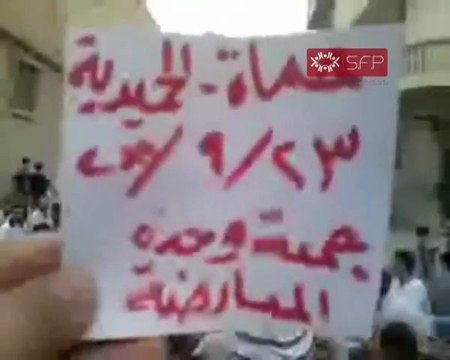 SFP
حماة - الحميدية
٢٣ / ٩ /
جمعة وحدة
المعارضة